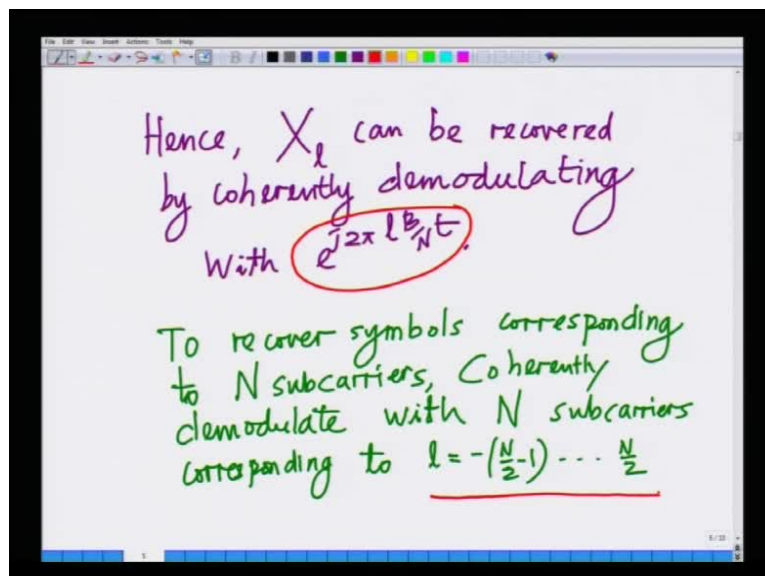 File Edit View Insert Actions Tools Help
Hence, X_l can be recovered
by coherently demodulating
With e^{j2π l B/N t}.
To recover symbols corresponding
to N subcarriers, Coherently
demodulate with N subcarriers
corresponding to l = -(N/2 -1) ... N/2
5